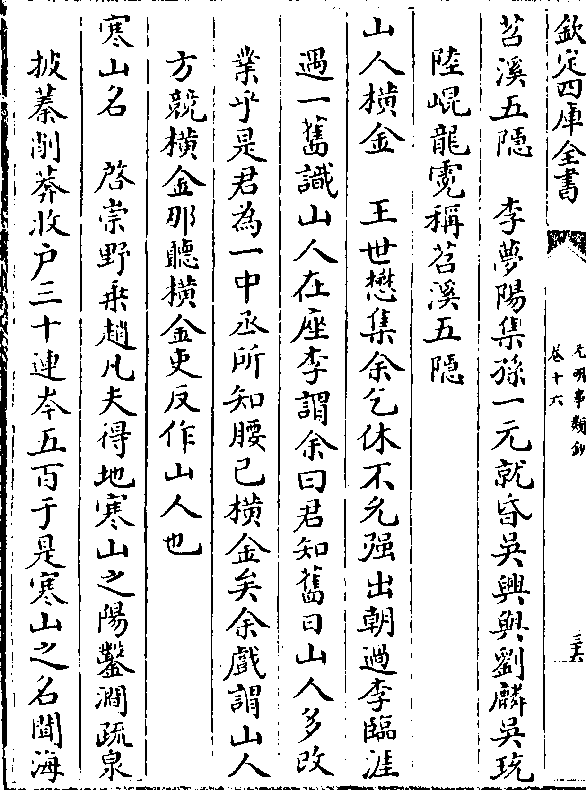 欽定四庫全書
元明事類鈔
卷十六
三六
苕溪五隱　李夢陽集孫一元就昏吳興與劉麟吳珫
陸崐龍霓稱苕溪五隱
山人橫金　王世懋集余乞休不允强出朝過李臨淮
遇一舊識山人在座李謂余曰君知舊日山人多改
業乎是君為一中丞所知腰已橫金矣余戲謂山人
方競橫金那聽橫金吏反作山人也
寒山名　啓崇野乗趙凡夫得地寒山之陽鑿澗疏泉
披蓁削莽收户三十連岑五百于是寒山之名聞海